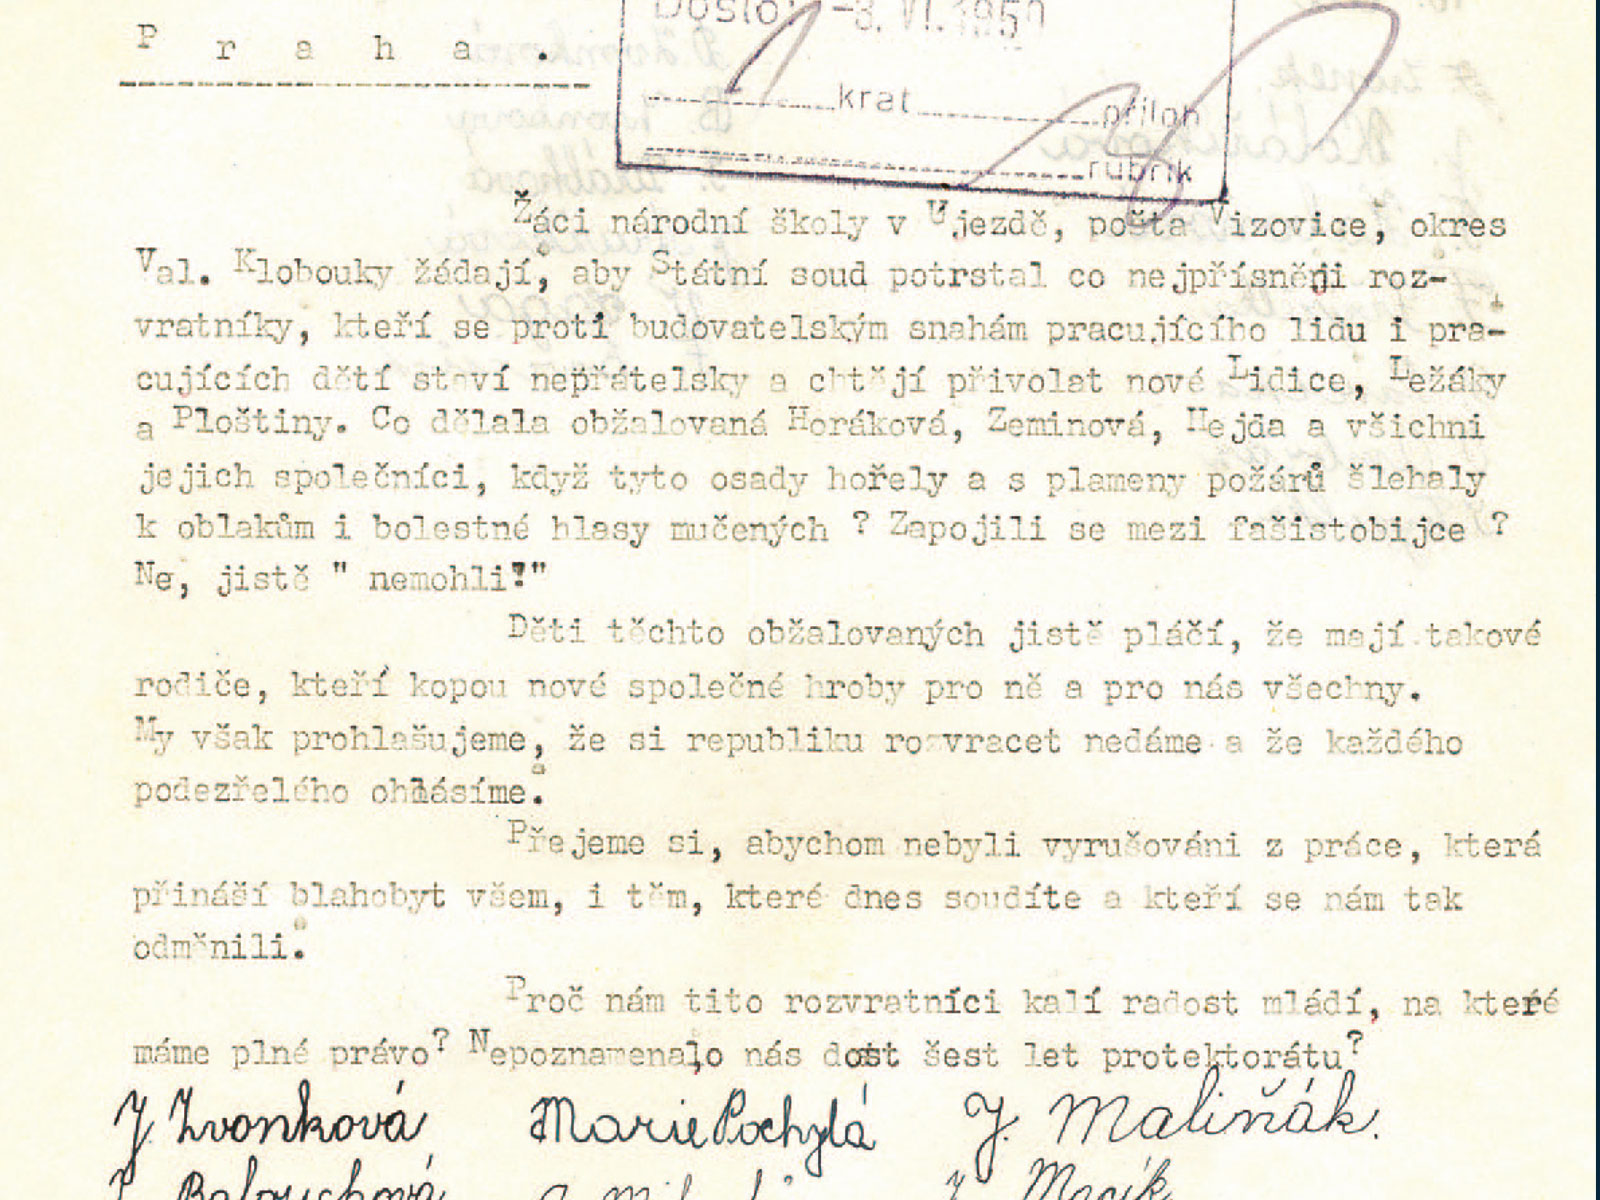 Došlo: -8. VI. 1950
P r a h a .
krat příloh
rubrik
Žáci národní školy v Ujezdě, pošta Vizovice, okres
Val. Klobouky žádají, aby Státní soud potrstal co nejpřísněji roz-
vratníky, kteří se proti budovatelským snahám pracujícího lidu i pra-
cujících dětí staví nepřátelsky a chtějí přivolat nové Lidice, Ležáky
a Ploštiny. Co dělala obžalovaná Horáková, Zeminová, Hejda a všichni
jejich společníci, když tyto osady hořely a s plameny požárů šlehaly
k oblakům i bolestné hlasy mučených ? Zapojili se mezi fašistobijce ?
Ne, jistě " nemohli!"
Děti těchto obžalovaných jistě pláčí, že mají takové
rodiče, kteří kopou nové společné hroby pro ně a pro nás všechny.
My však prohlašujeme, že si republiku rozvracet nedáme a že každého
podezřelého ohlásíme.
Přejeme si, abychom nebyli vyrušováni z práce, která
přináší blahobyt všem, i těm, které dnes soudíte a kteří se nám tak
odměnili.
Proč nám tito rozvratníci kalí radost mládí, na které
máme plné právo? Nepoznamenalo nás dost šest let protektorátu?
J. Zvonková Marie Pochylá J. Maliňák.
Balouchová J. Macík